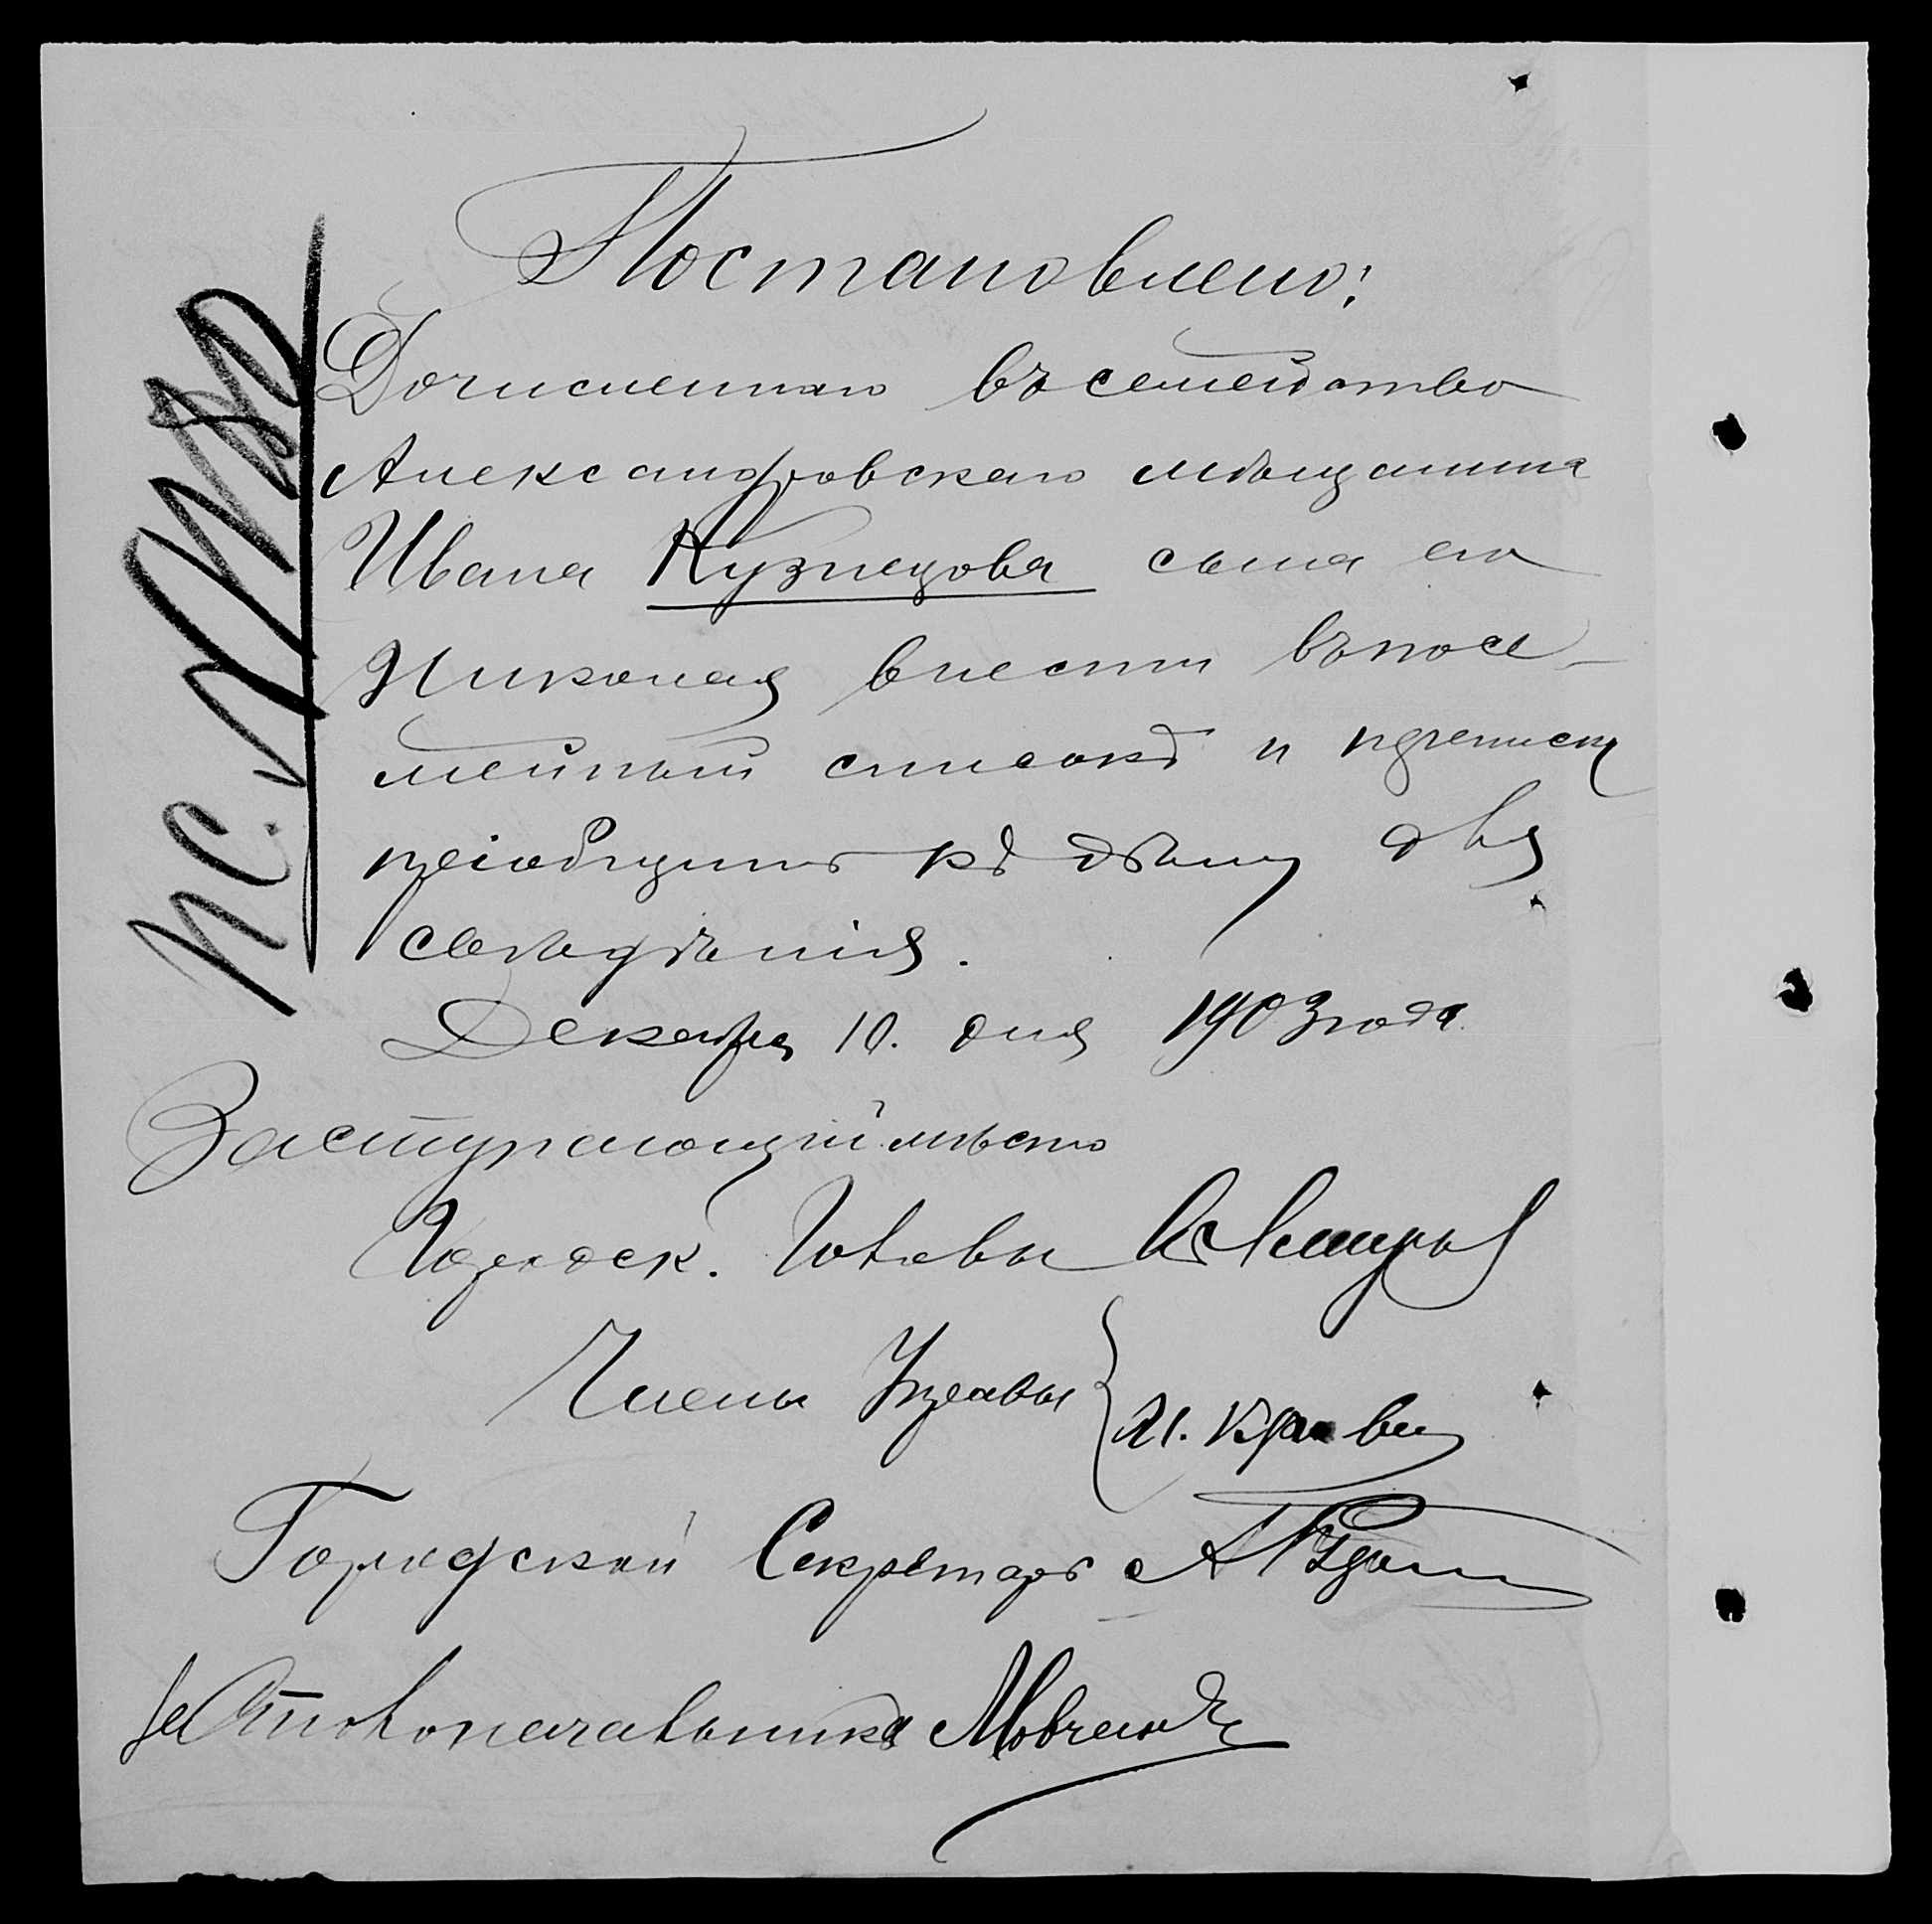 Постановлено:
Дочисленнаго въ семейство
Александровскаго мѣщанина
Ивана Кузнецова сына его
Николая внести въ посе-
мейный списокъ и переписку
пріобщить къ дѣлу для
свѣдѣнія.
Декабря 10. дня 1903 года.
Заступающій мѣсто
Городск. Головы
Члены Управы
И. Кравец
Городской Секретарь
За Столоначальника Мовчанъ